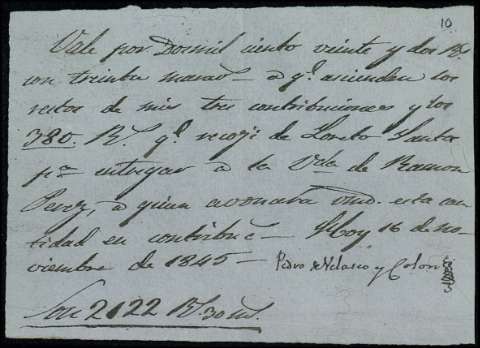 10
Vale por Dosmil ciento veinte y dos Rs.
con treinta marav.s a q.e ascienden los
restos de mis tres contribuciones y los
380. Rs. q.e recojí de Loreto Santa
p.a entregar a la V.da de Ramon
Perez, a quien avonara vmd. esta can
tidad en contribu.c Hoy 16 de no-
viembre de 1845 - Pedro de Velasco y Colon
Son 2122 Rs. 30 ms.